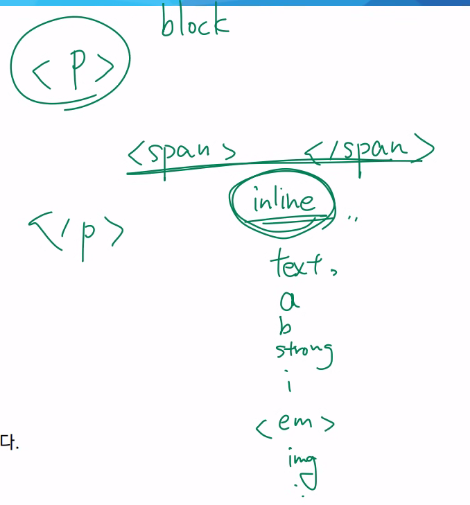 block
<p>
<span> </span>
inline ..
</p>
text,
a
b
strong
i
<em>
다.
img